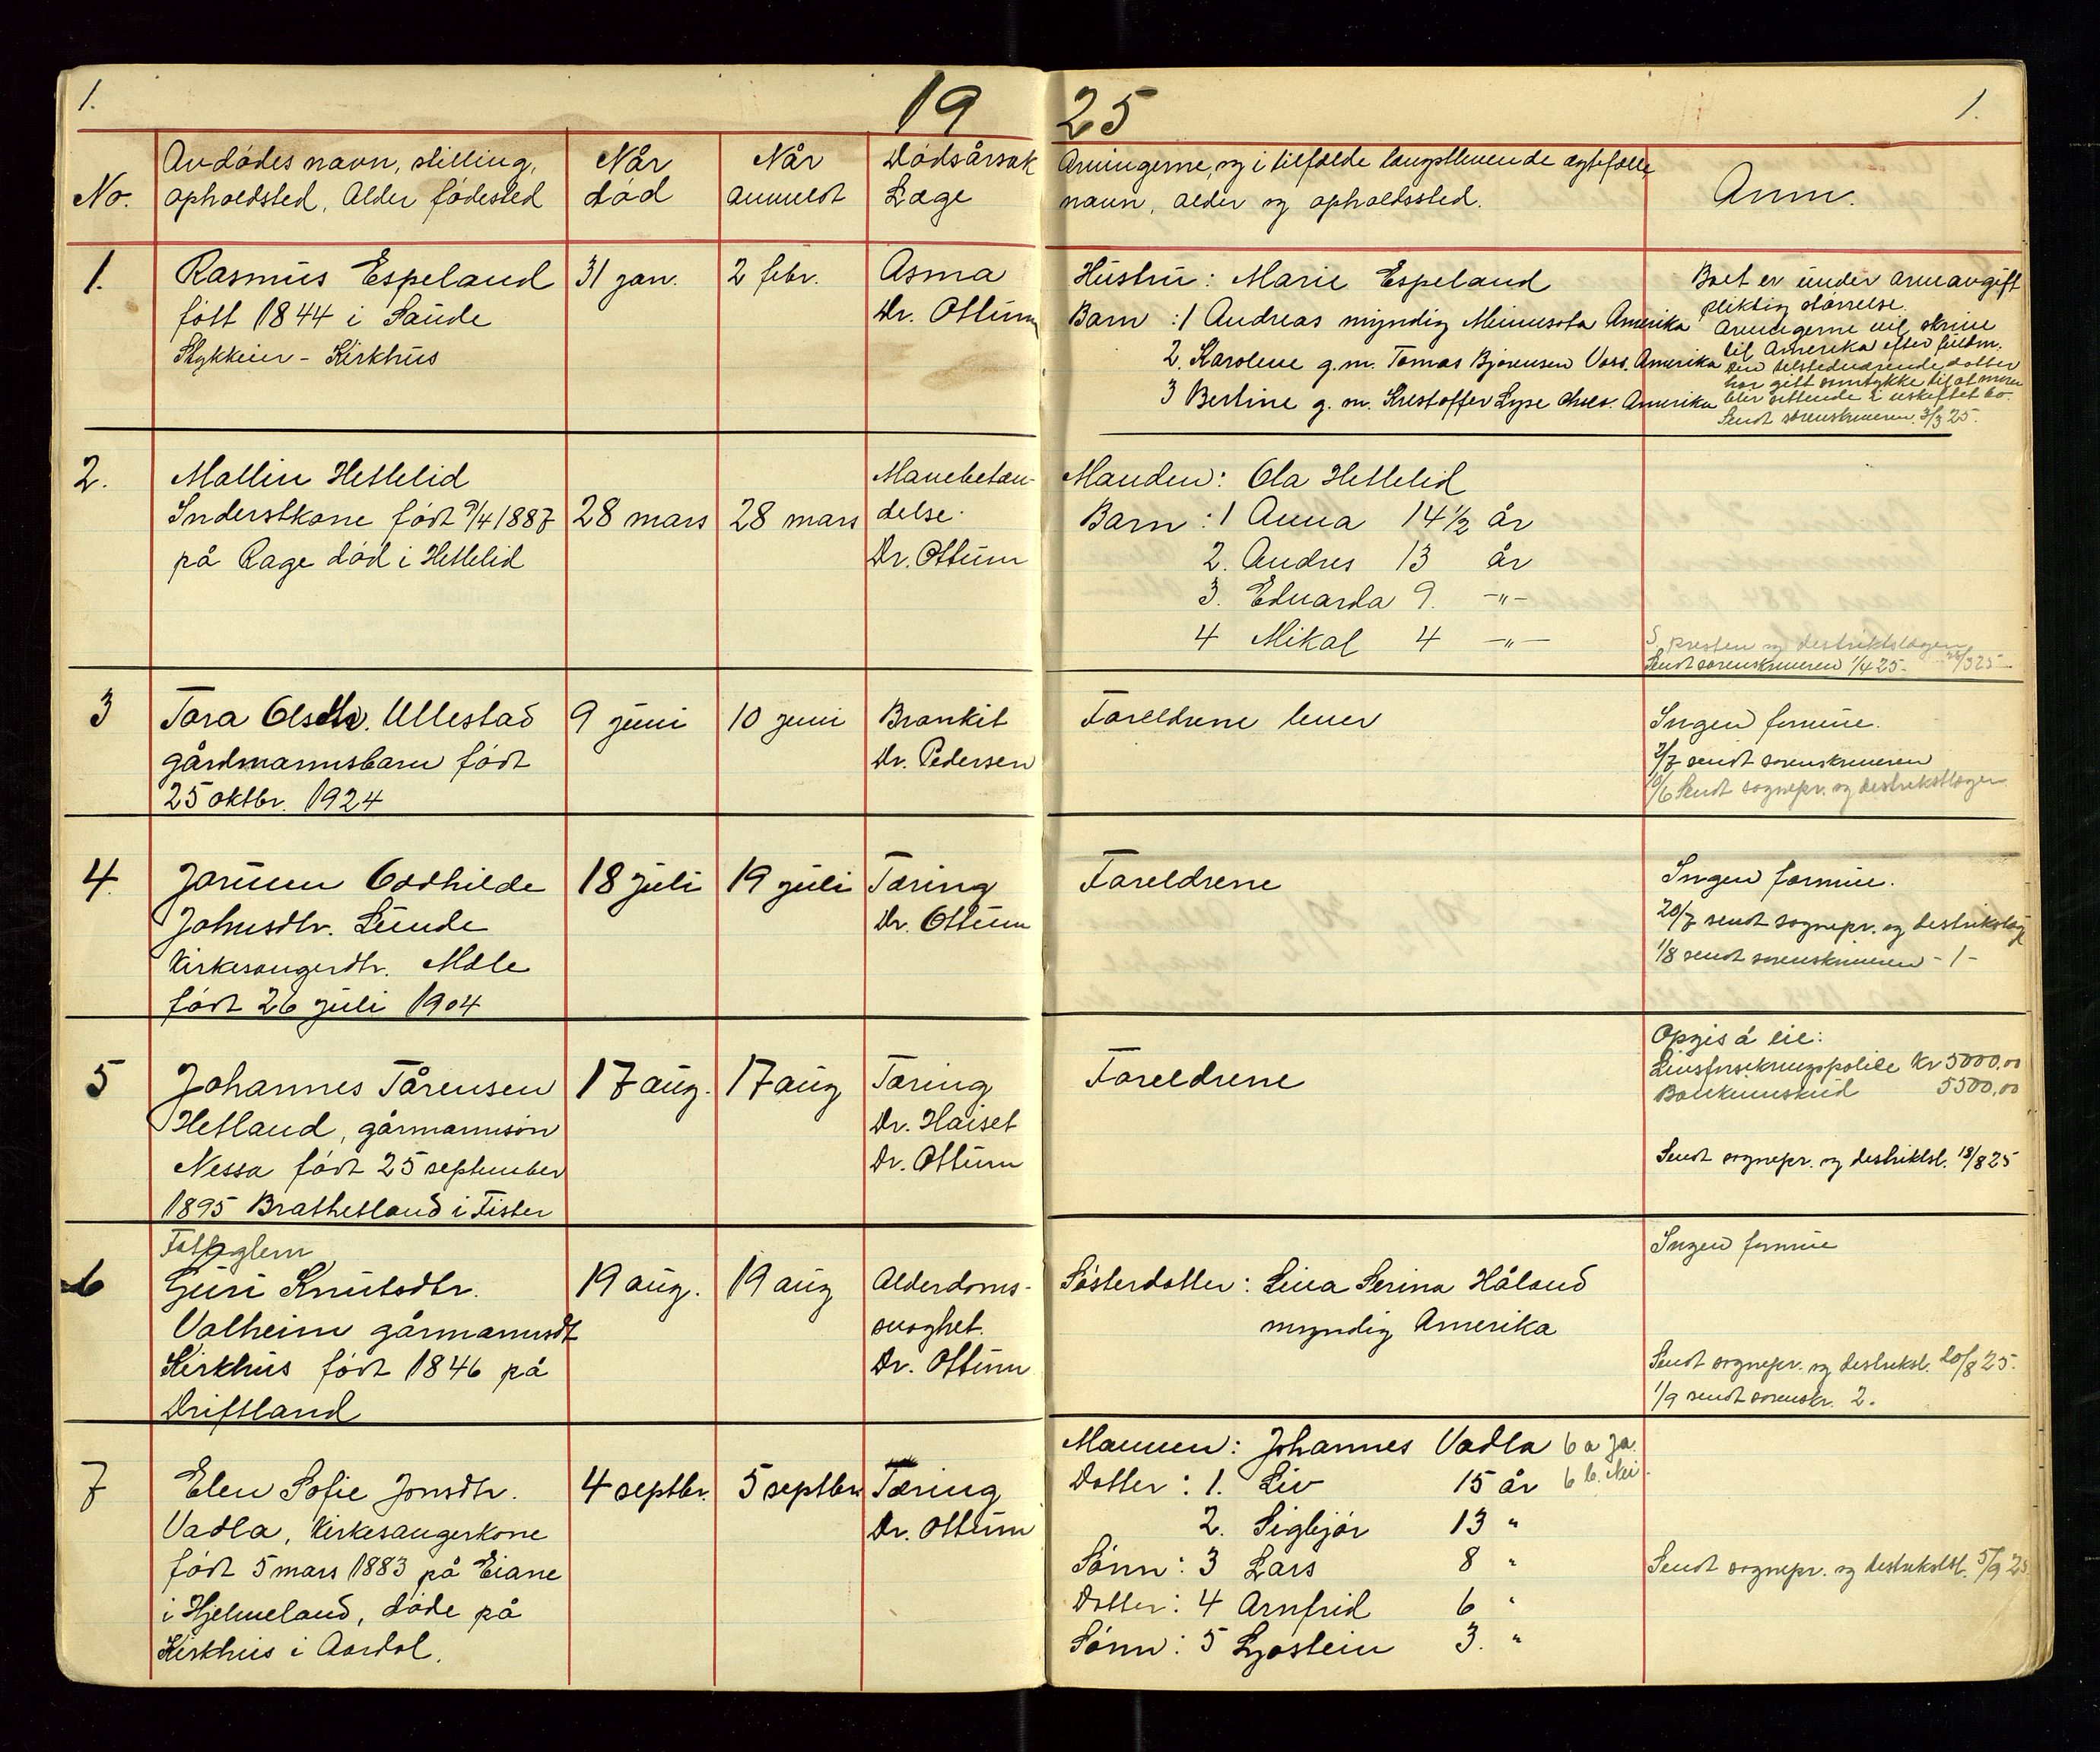 1.
19
25
1.
No.
Avdødes navn, stilling,
opholdsted, Alder fødested
Når
død
Når
anmeldt
Dødsårsak
Læge
Arvingerne, og i tilfælde længstlevende ægtefælle
navn, alder og opholdssted.
Anm.
1.
Rasmus Espeland
født 1844 i Saude
Stykkeier - Kirkhus
31 jan.
2 febr.
Asma
Dr. Ottum
Hustru: Marie Espeland
Barn : 1 Andreas myndig Minnesota Amerika
2. Karolene g.m. Tomas Bjørensen Voss. Amerika
3 Bertine g. m. Krestoffer Lyse Amerika
Boet er under arveavgift
pliktig størrelse.
Arvingerne vil skrive
til Amerika efter fuldm.
Den tilstedeværende datter
har gitt samtykke til at moren
blir sittende i uskiftet bo.
Sendt sorenskriveren 3/3 25.
2.
Mallin Hetlelid
Inderstkone født 9/4 1887
på Rage død i Hetlelid
28 mars
28 mars
Mavebetæn-
delse.
Dr. Ottum
Manden: Ola Hetlelid
Barn : 1 Anna 14 1/2 år
2. Andres 13 år
3. Edvarda 9. -"-
4 Mikal 4 -"-
S. presten og destriktslægen 28/3 25
Sendt sorenskriveren 1/4 25.
3
Tora Olsdtr. Ullestad
gårdmannsbarn født
25 oktbr. 1924
9 juni
10 juni
Bronkit
Dr. Pedersen
Foreldrene lever
Ingen formue.
2/7 sendt sorenskriveren
10/6 Sendt sognepr. og destriktslægen
4.
Jorunn Bodhilde
Johnsdtr. Lunde
Kirkesangerdtr. Mæle
født 26 juli 1904
18 juli
19 juli
Tæring
Dr. Ottum
Foreldrene
Ingen formue.
20/7 sendt sognepr. og destrikslæg
1/8 sendt sorenskriveren - 1 -
5
Johannes Tårensen
Hetland, gårmannsøn
Nessa født 25 september
1895 Brathetland i Fister
17 aug.
17 aug
Tæring
Dr. Haiset
Dr. Ottum
Foreldrene
Opgis å eie:
Livsforsikringspolise Kr 5000,00
Bankinnskud 5500,00
Sendt sognepr. og destriktsl. 18/8 25
6
Fattiglem
Guri Knutsdtr.
Valheim gårmannsdt
Kirkhus født 1846 på
Driftland
19 aug.
19 aug
Alderdoms-
svaghet.
Dr. Ottum
Søsterdatter: Lina Serina Håland
myndig Amerika
Ingen formue
Sendt sognepr. og destriksl. 20/8 25.
1/9 sendt sorenskr. 2.
7
Elen Sofie Jonsdtr.
Vadla, Kirkesangerkone
født 5 mars 1883 på Eiane
i Hjelmeland, døde på
Kirkhus i Aardal.
4 septbr.
5 septbr
Tæring
Dr. Ottum
Mannen: Johannes Vadla 6 a Ja.
Datter : 1. Liv 15 år 6 b. Nei.
2. Sigbjør 13 "
Sønn: 3 Lars 8 "
Datter: 4 Arnfrid 6 "
Sønn: 5 Ljostein 3. "
Sendt sognepr. og destriktsl. 5/9 25